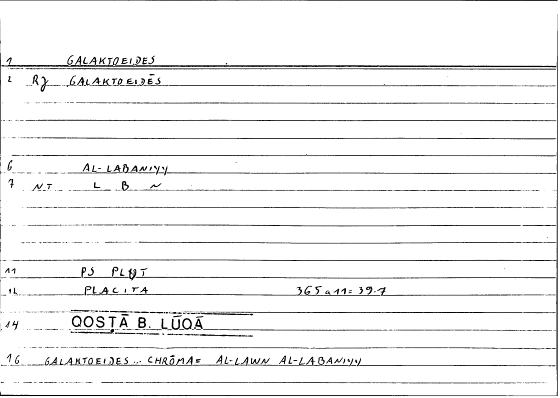 1 GALAKTOEIDES
2 Rj GALAKTOEIDĒS
6 AL-LABANIYY
7 N.T L B N
11 PS PLUT
12 PLACITA 365 a 11 = 39.7
14 QOSṬĀ B. LŪQĀ
16 GALAKTOEIDES... CHRŌMA = AL-LAWN AL-LABANIYY